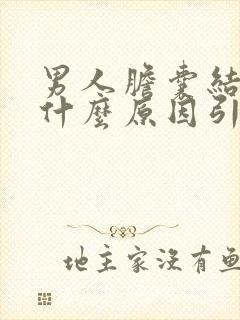 男人膽囊結
什麼原因引
地主家沒有魚